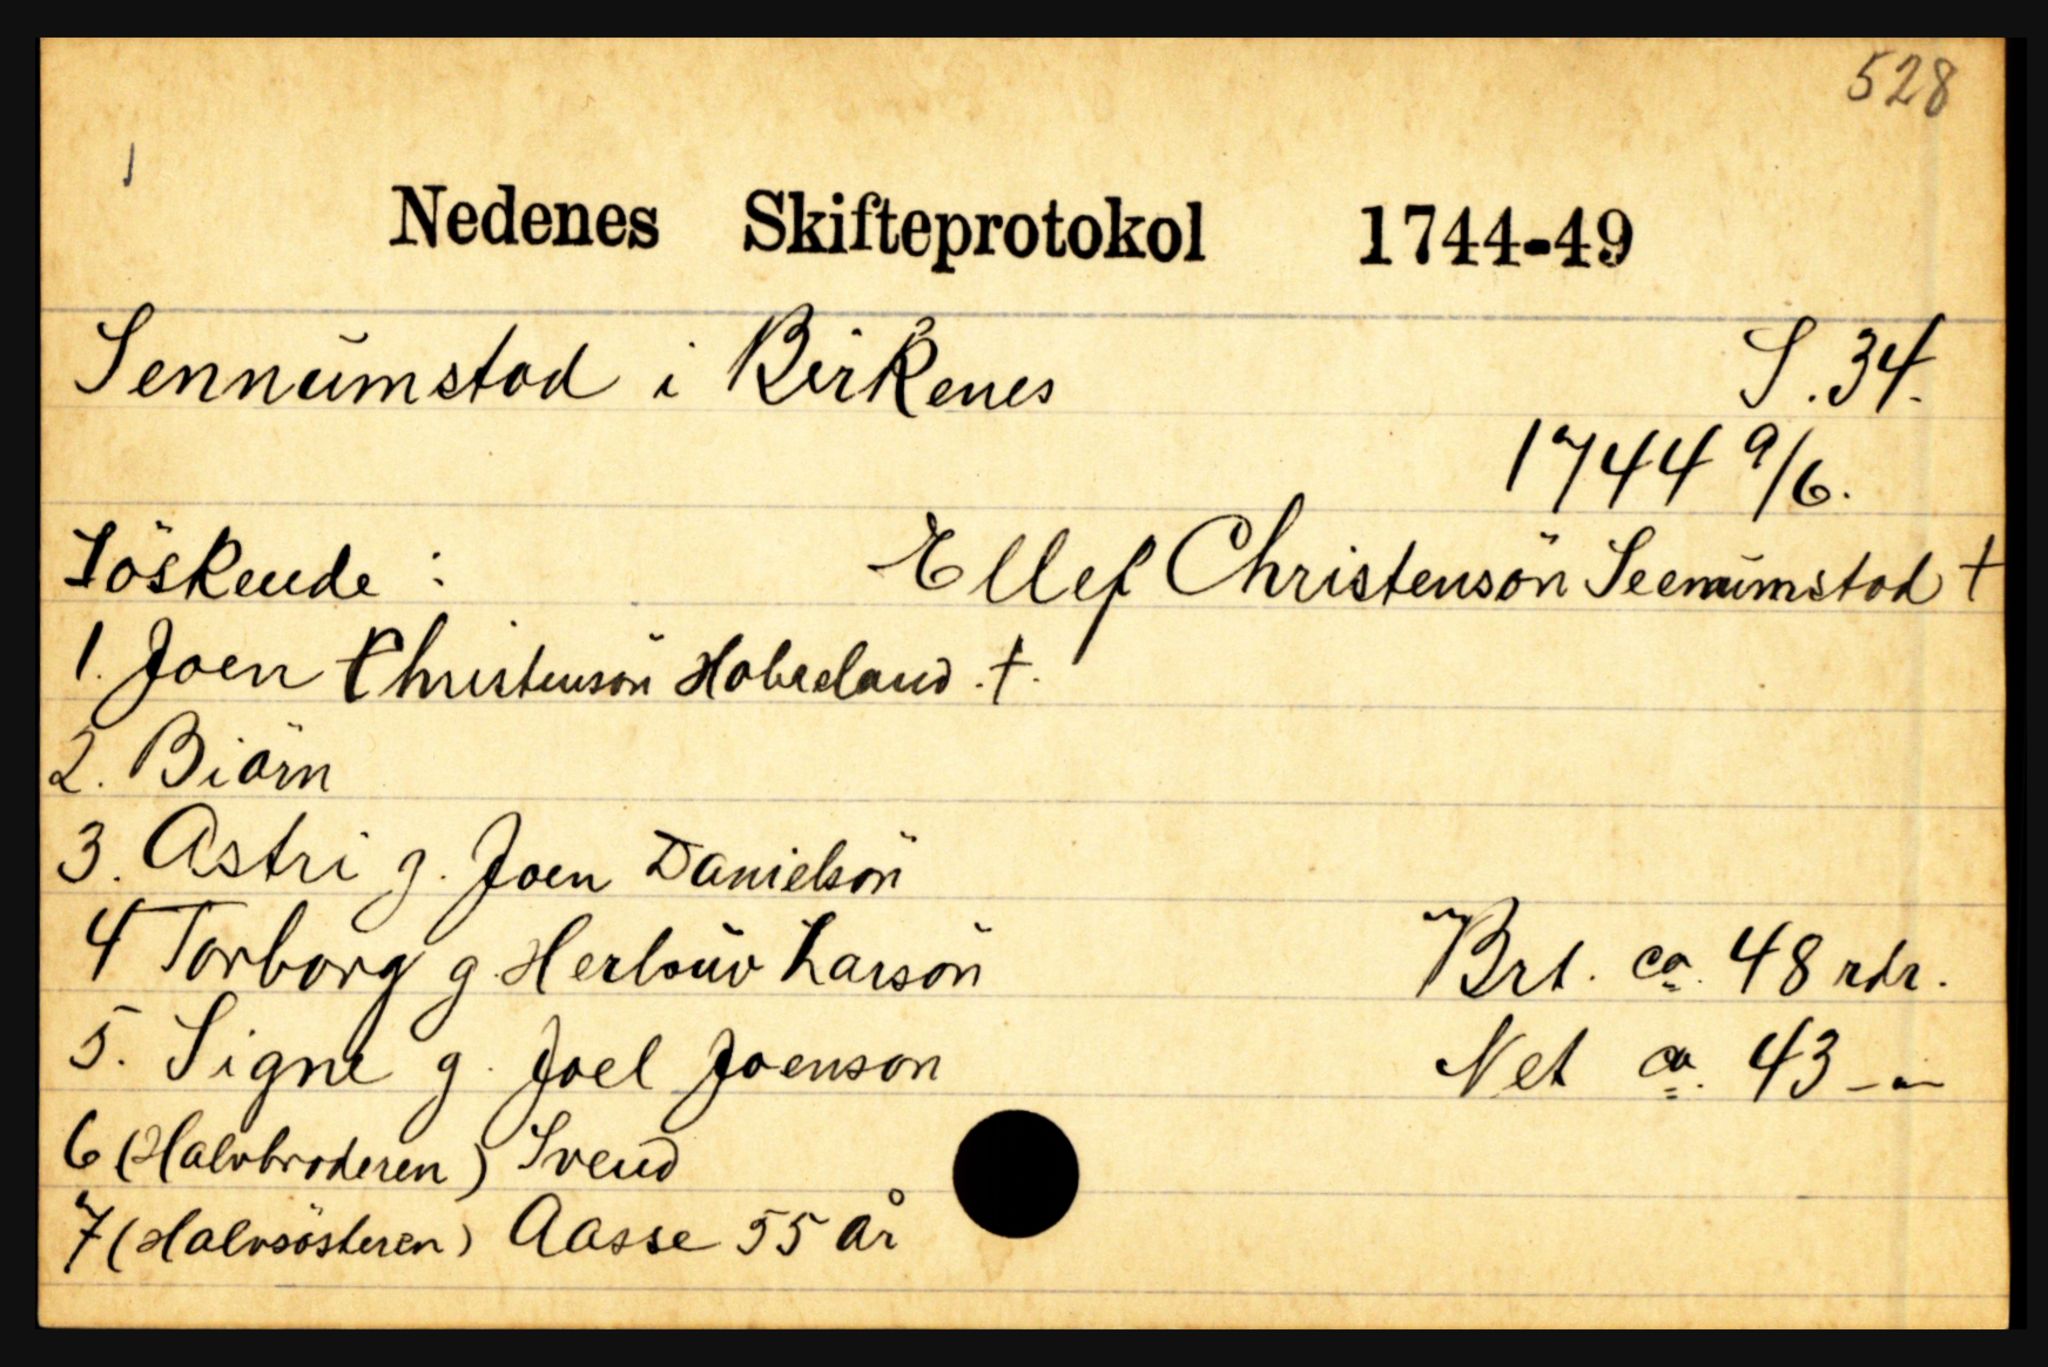 528
1
Nedenes Skifteprotokol 1744-49
Sennumstad i Birkenes S. 34.
1744 9/6.
Söskende : Ellef Christensön Seenumstad †
1. Joen Christensön Hobeland. †.
2. Biörn
3. Astri g. Joen Danielsön
4 Torborg g. Herlouv Larsön Brt. ca. 48 rdr.
5. Signe g. Joel Joenson Net ca. 43 -"-
6 (Halvbroderen) Svend
7 (Halvsösteren) Aasse 55 år